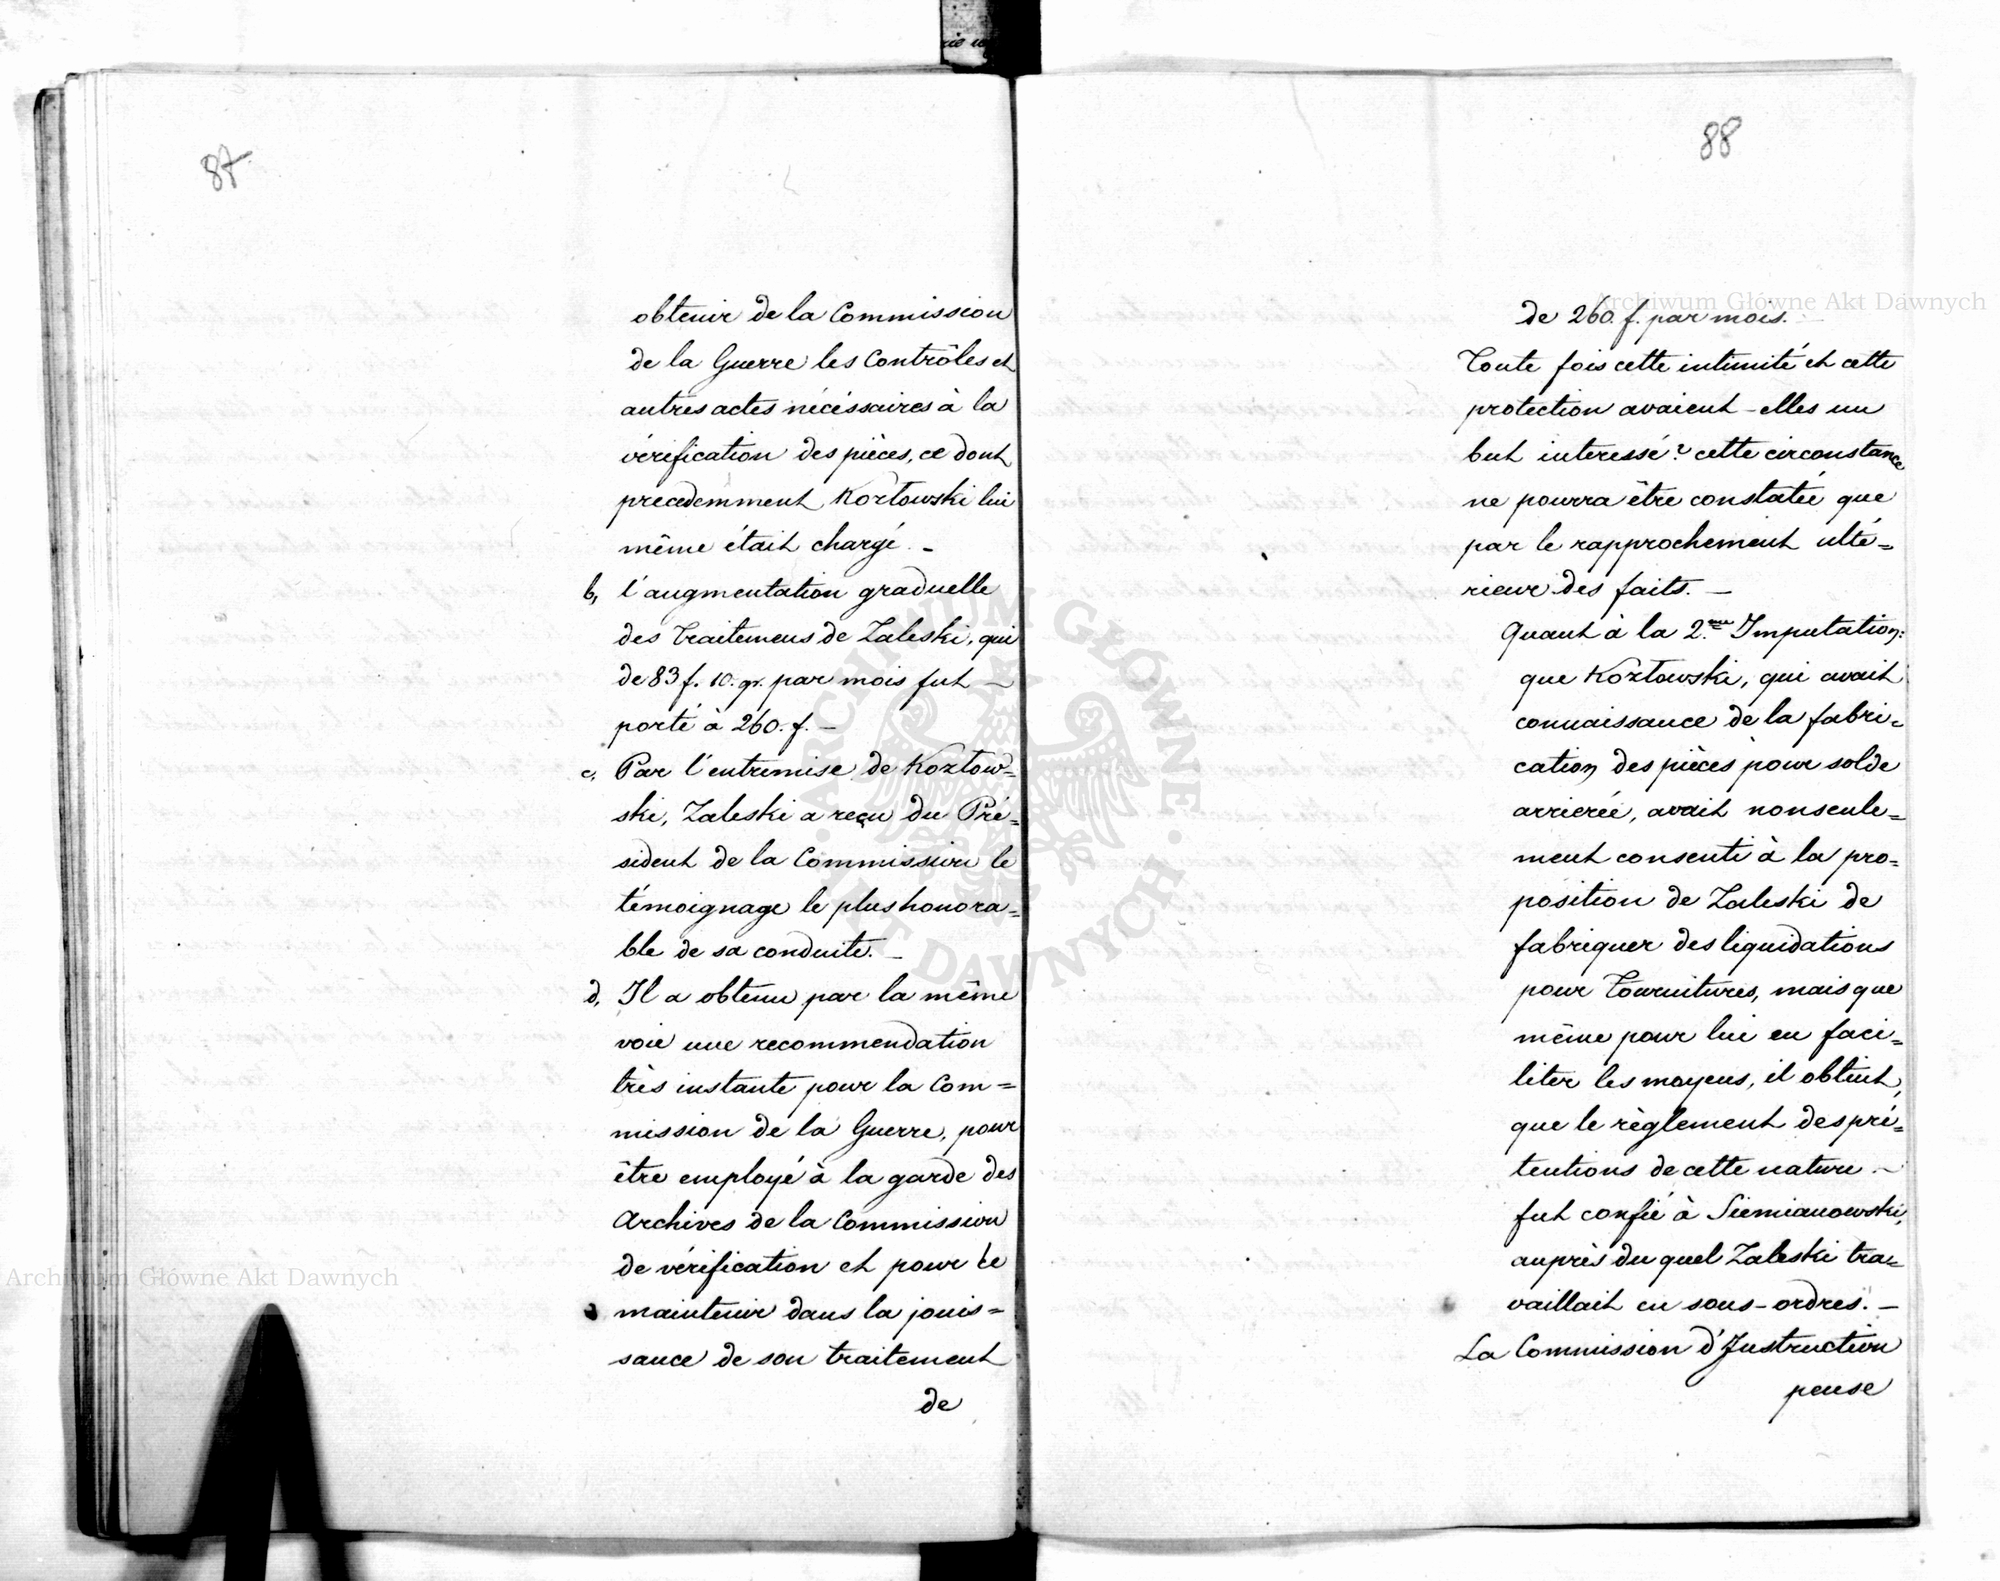 87
obtenir de la Commission
de la Guerre les Contrôles et
autres actes nécéssaires à la
vérification des pièces, ce dont
precedemment Kozłowski lui
même était chargé. –
b, l'augmentation graduelle
des Traitemens de Zaleski, qui
de 83 f. 10. gr. par mois fut –
porté à 260. f. –
c, Par l'entremise de Kozłow=
ski, Zaleski a reçu du Pré=
sident de la Commission le
témoignage le plus honora=
ble de sa conduite. –
d, Il a obtenu par la même
voie une recommendation
très instante pour la Com=
mission de la Guerre, pour
être employé à la garde des
Archives de la Commission
de vérification et pour le
maintenir dans la jouis=
sance de son traitement
de
88
de 260. f. par mois. –
Toute fois cette intimité et cette
protection avaient-elles un
but interessé? cette circonstance
ne pourra être constatée que
par le rapprochement ulté=
rieur des faits. –
Quant à la 2.me Imputation:
que Kozłowski, qui avait
connaissance de la fabri=
cation des pièces pour solde
arrierée, avait nonseule=
ment consenti à la pro=
position de Zaleski de
fabriquer des liquidations
pour Fournitures, mais que
même pour lui en faci=
liter les moyens, il obtint,
que le règlement des pré=
tentions de cette nature –
fut confié à Siemianowski,
auprès du quel Zaleski tra=
vaillait en sous-ordres. –
La Commission d'Instruction
pense
Archiwum Główne Akt Dawnych
Archiwum Główne Akt Dawnych
ARCHIWUM GŁÓWNE AKT DAWNYCH